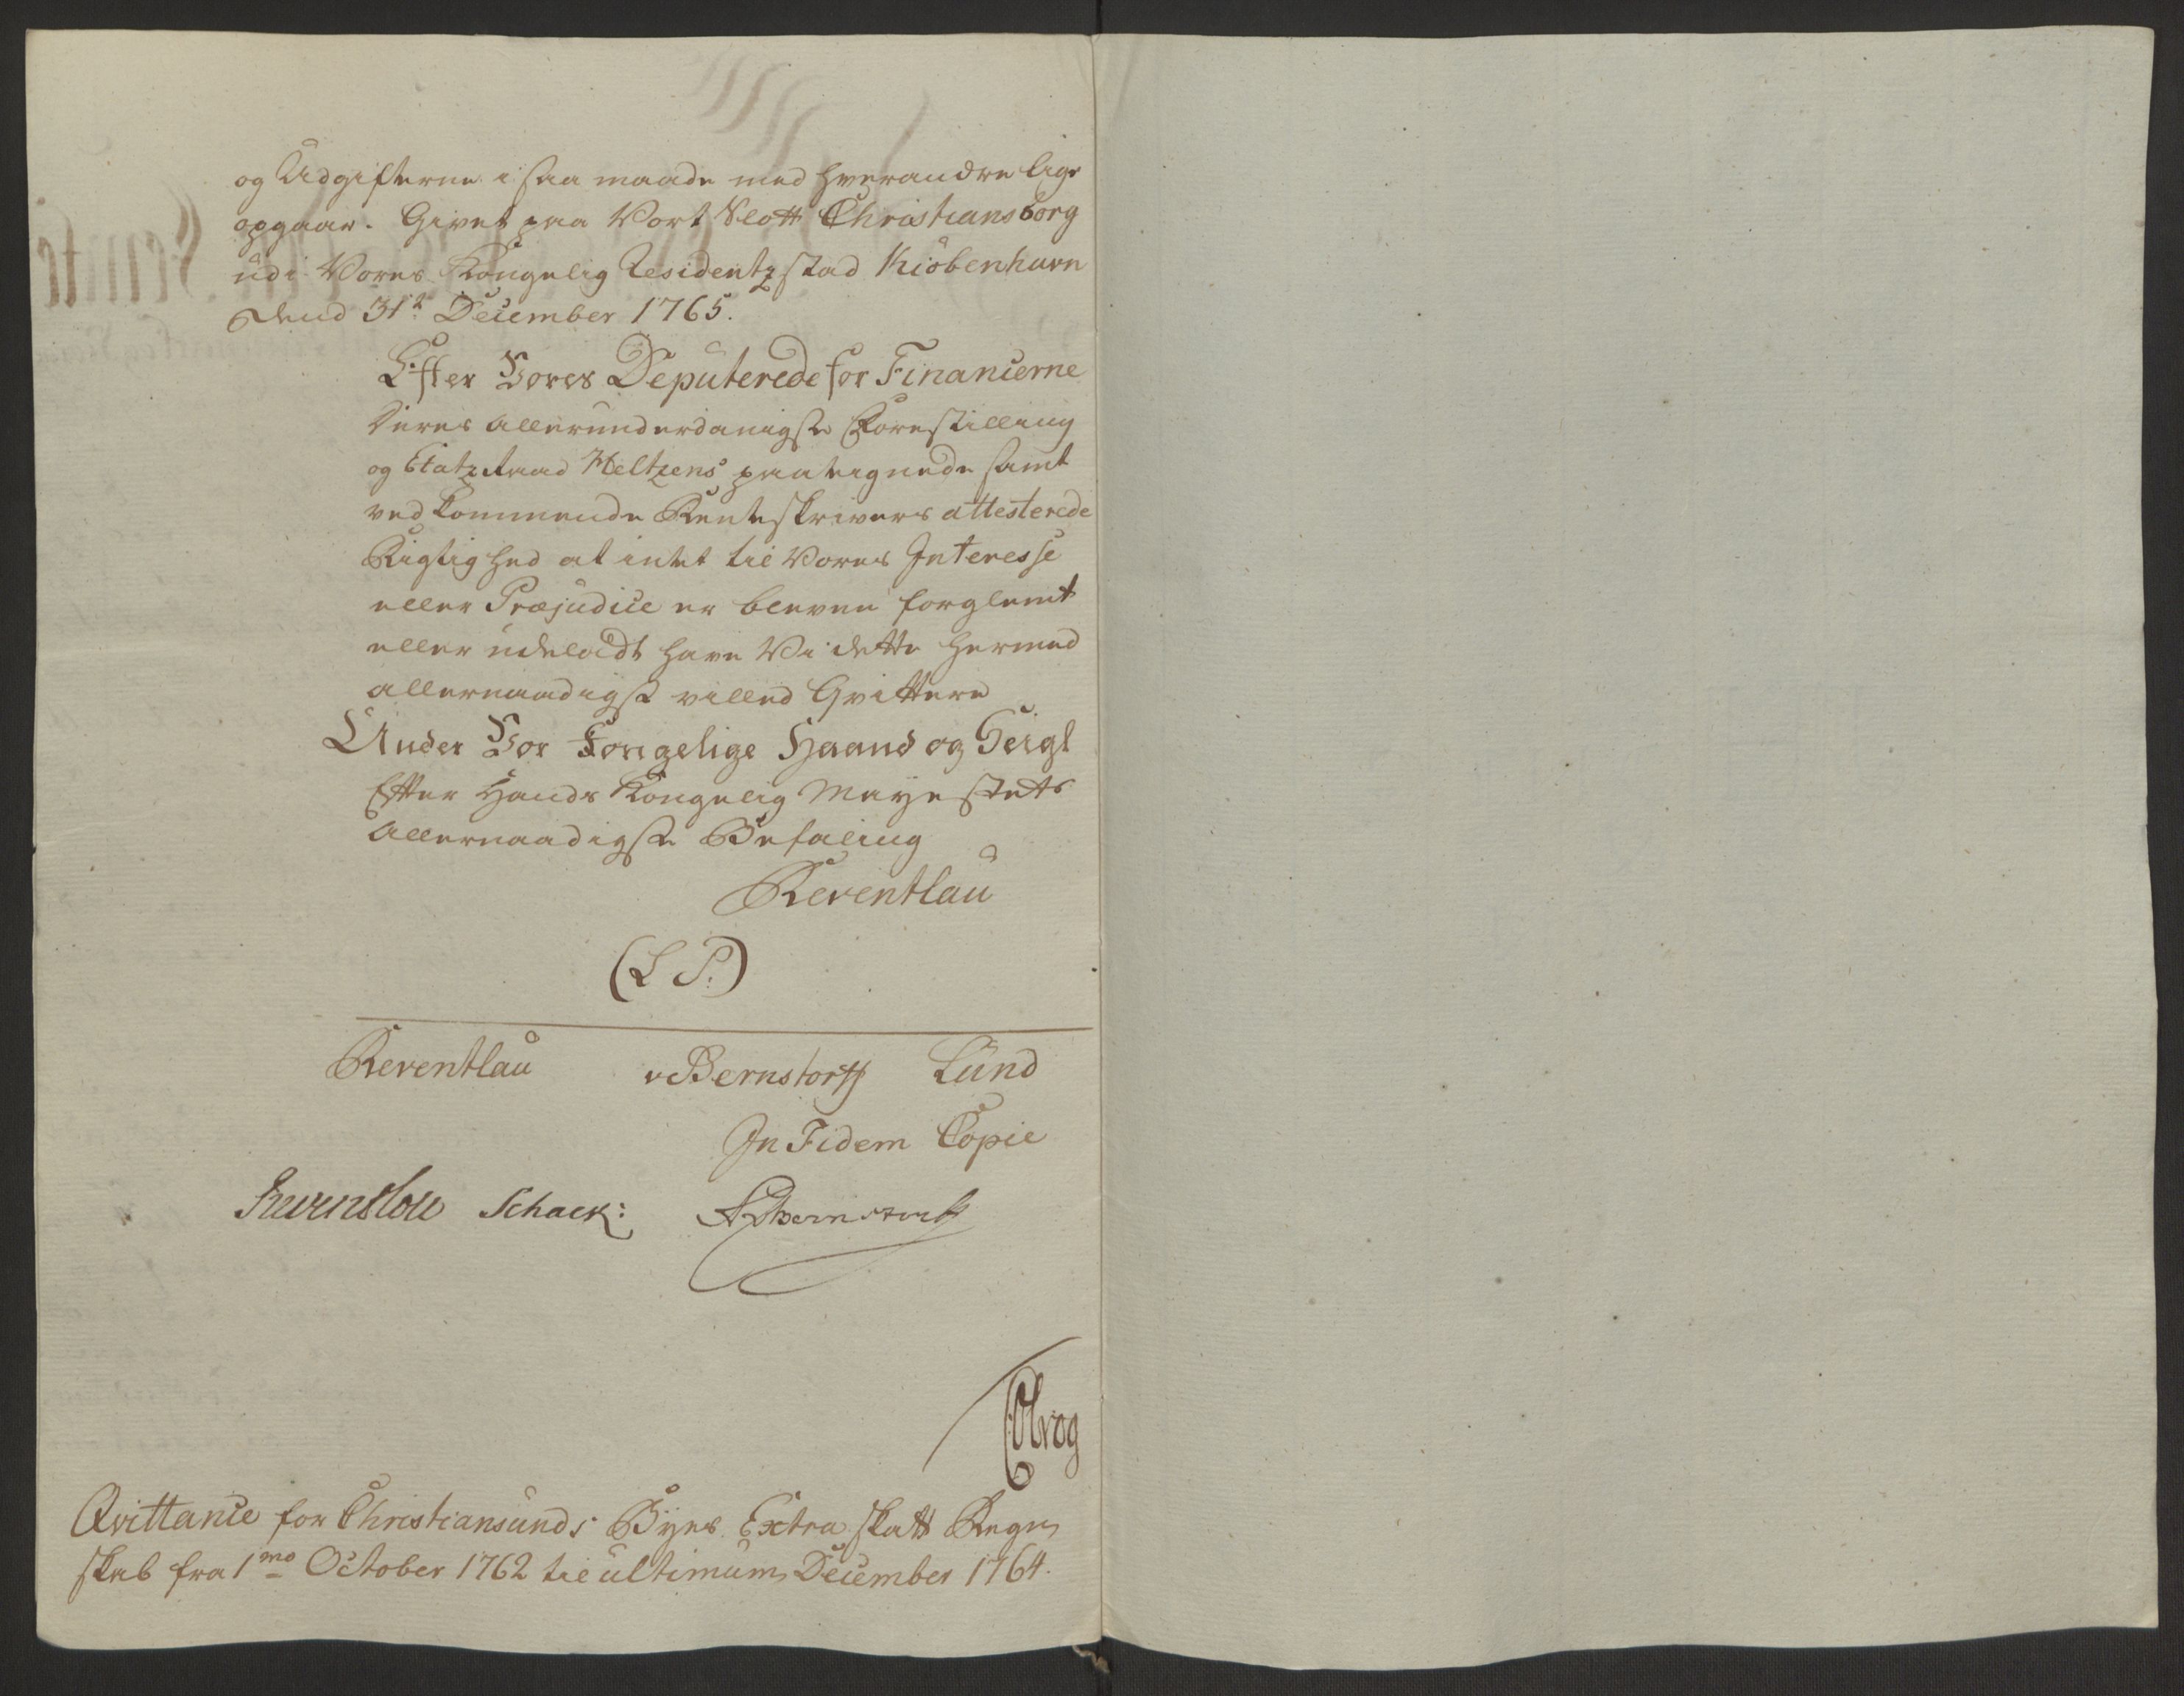 og Udgifterne i saa maade med hverandre lige
opgaar. Givet paa Vort Slott Christiansborg
udi Vores Kongelig Residentzstad Kiöbenhavn
Dend 31te December 1765.
Efter Vores Deputerede for Financerne
Deres allerunderdanigste Forestilling
og Etatz Raad Heltzens paategnede samt
vedkommende Renteskrivers attesterede
Rigtighed at intet til Vores Interesse
eller Præjudice er bleven forglemt
eller udeladt have Vi dette hermed
allernaadigst villed Qvittere
Under Vor Kongelige Haand og Seigl
Efter Hands Kongelig Mayestets
Allernaadigste Befaling
Reventlau
(L S.)
Reventlau v Bernstorff Lund
In Fidem Copie
Reventlou Schack: Bernstorff
Qvittance for Christiansunds Byes Extra skatt Regn
skab fra 1mo October 1762 til ultimum December 1764.